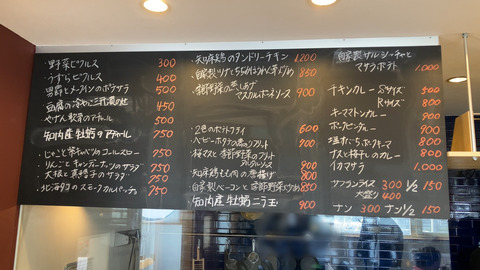 ・野菜ピクルス 300
・うずらピクルス 400
・男爵とメークインのポテサラ 500
・豆腐の冷やし 450
・やげん軟骨のアチャール 500
・知内産 牡蛎のアチャール 750
・じゃこと芽キャベツのコールスロー 750
・りんごとキャンディーナッツのサラダ 750
・大根と真鱈子のサラダ 750
・北海タコのスモークカルパッチョ 750
・知床鶏のタンドリーチキン 1,200
・自家製つくね 850
・季節野菜の蒸しあげ
マスカルポーネソース 900
・2色のポテトフライ 600
・ベビーホタテの磯のフリット 700
・桜マスと季節野菜のフリット
タルタルソース 900
・知床鶏もも肉の唐揚げ 800
・自家製ベーコンと季節野菜炒め 850
・知内産 牡蛎ニラ玉 900
自家製サルシーチャと
マサラポテト 1,000
チキンカレー Sサイズ 500
Rサイズ 800
キーマトマトカレー 900
ポークビンダルー 900
塩すじらポークキーマ 800
ナスと梅干しのカレー 800
イカマサラ 1,000
サフランライス 300 1/2 150
大盛り 400
ナン 300 ナン1/2 150